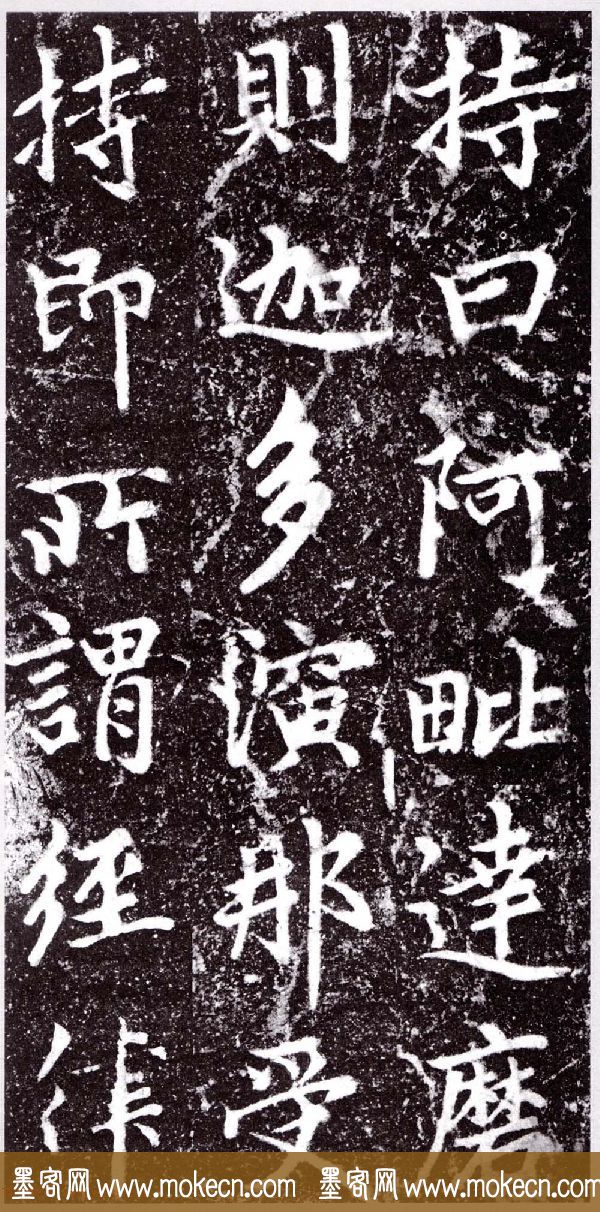 持曰阿毗達磨
則迦多演那受
持即所謂經律
墨客网 www.mokecn.com 墨客网 www.mokecn.com